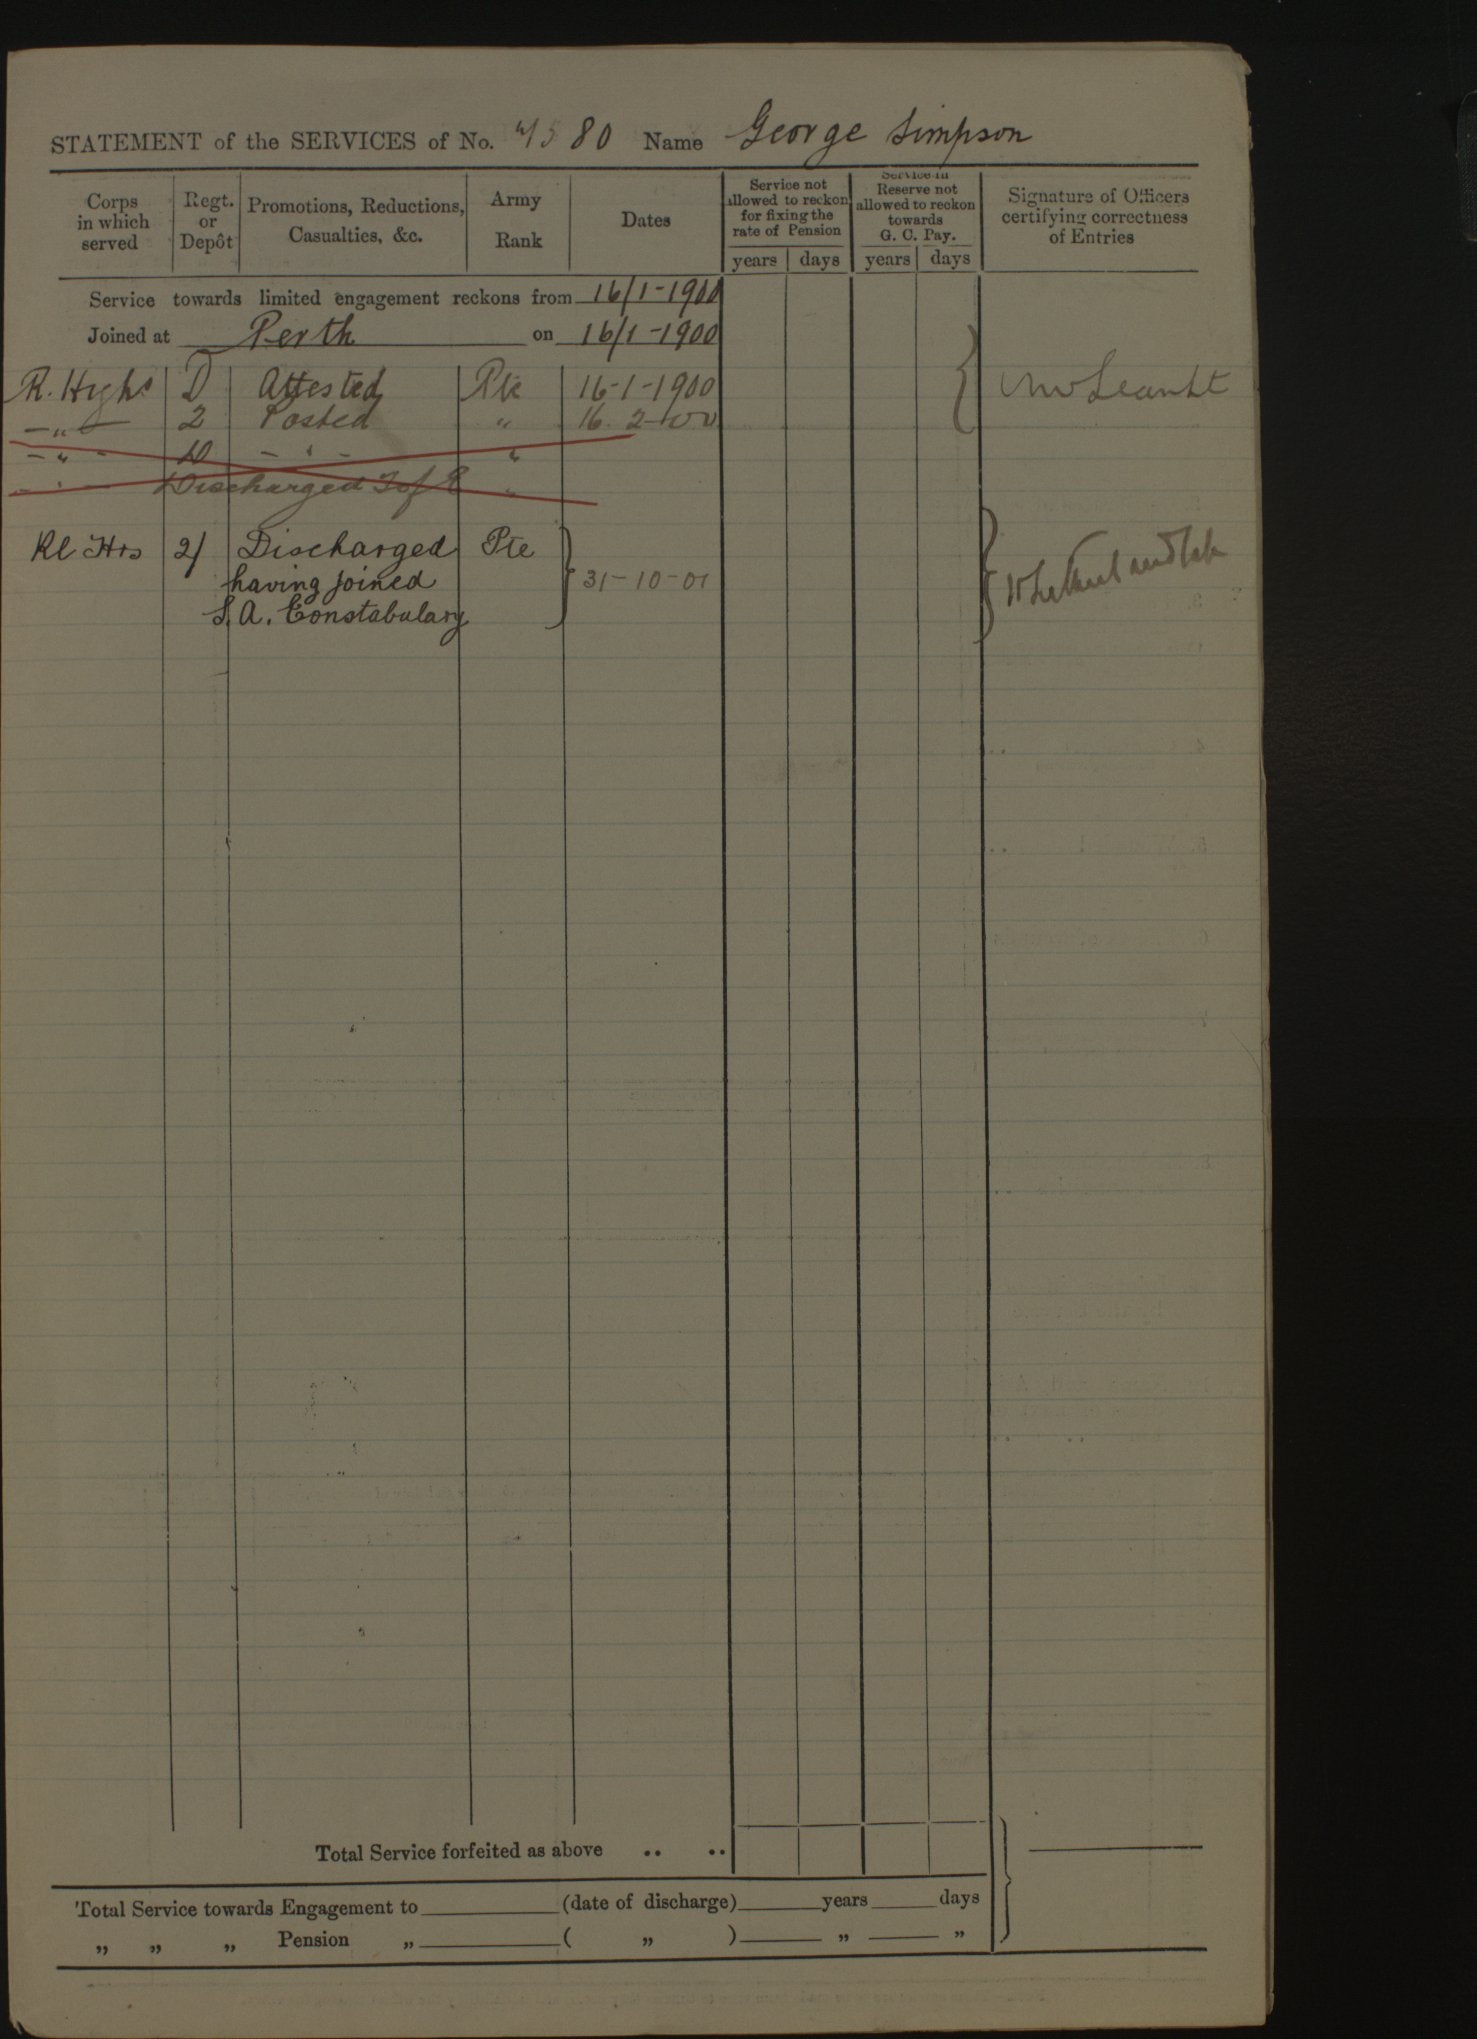 STATEMENT of the SERVICES of No. 4580 Name George Simpson
Corps in which served
Regt. or Depôt
Promotions, Reductions, Casualties, &c.
Army Rank
Dates
Service not allowed to reckon for fixing the rate of Pension
Service in Reserve not allowed to reckon towards G. C. Pay.
Signature of Officers certifying correctness of Entries
years days years days
Service towards limited engagement reckons from 16/1-1900
Joined at Perth on 16/1-1900
R. Highs D Attested Pte 16-1-1900
- „ - 2 Posted „ 16. 2-00
- „ - D - „ - „
- „ - Discharged „
Rl Hrs 2/ Discharged Pte
having joined 31-10-01
S.A. Constabulary
Total Service forfeited as above .. ..
Total Service towards Engagement to (date of discharge) years days
„ „ „ Pension „ ( „ ) „ „